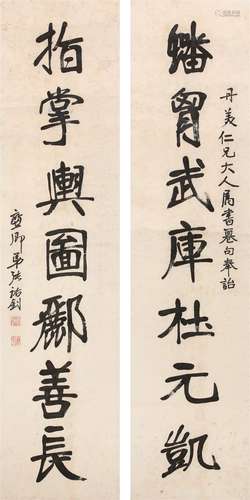 丹美仁兄大人属書句奉詒
蟠胷武庫杜元凱
指掌輿圖酈善長
廉卿弟張裕釗